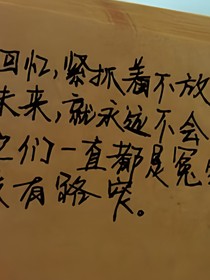 回忆，紧抓着不放
未来，就永远不会
它们一直都是冤
没有路